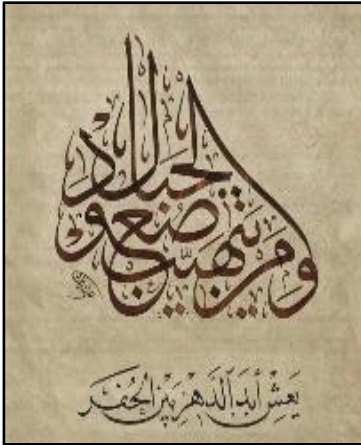 ومن يتهيب صعود الجبال
يعش أبد الدهر بين الحفر